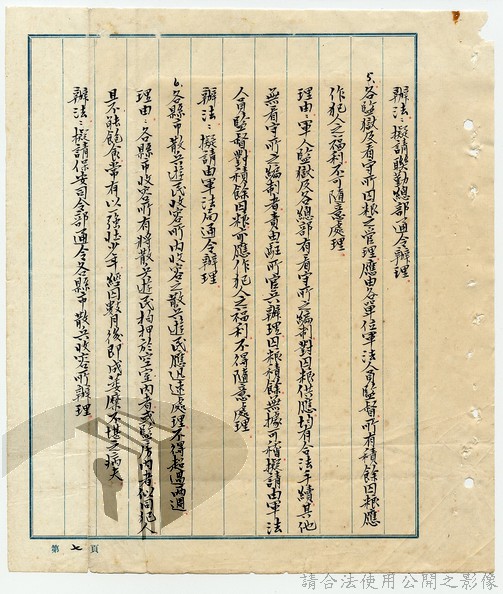 辦法：擬請聯勤總部通令辦理
5.各監獄及看守所囚糧之管理應由各單位軍法人員監督所有積餘囚糧應
作犯人之福利不可隨意處理
理由：軍人監獄及各總部有看守所之編制對囚糧供應均有合法手續其他
無看守所之編制者責由駐所官兵辦理囚糧積餘無據可稽擬請由軍法
人員監督對積餘囚糧可應作犯人之福利不得隨意處理
辦法：擬請由軍法局通令辦理
6.各縣市散兵遊民收容所內收容之散兵遊民應迅速處理不得超過兩週
理由：各縣市收容所有將散兵遊民拘押於空室內者或監房內者似同犯人
且不能飽食常有以強壯少年經因數月後即成萎靡不堪之病夫
辦法：擬請保安司令部通令各縣市散兵收容所辦理
第七頁
請合法使用公開之影像